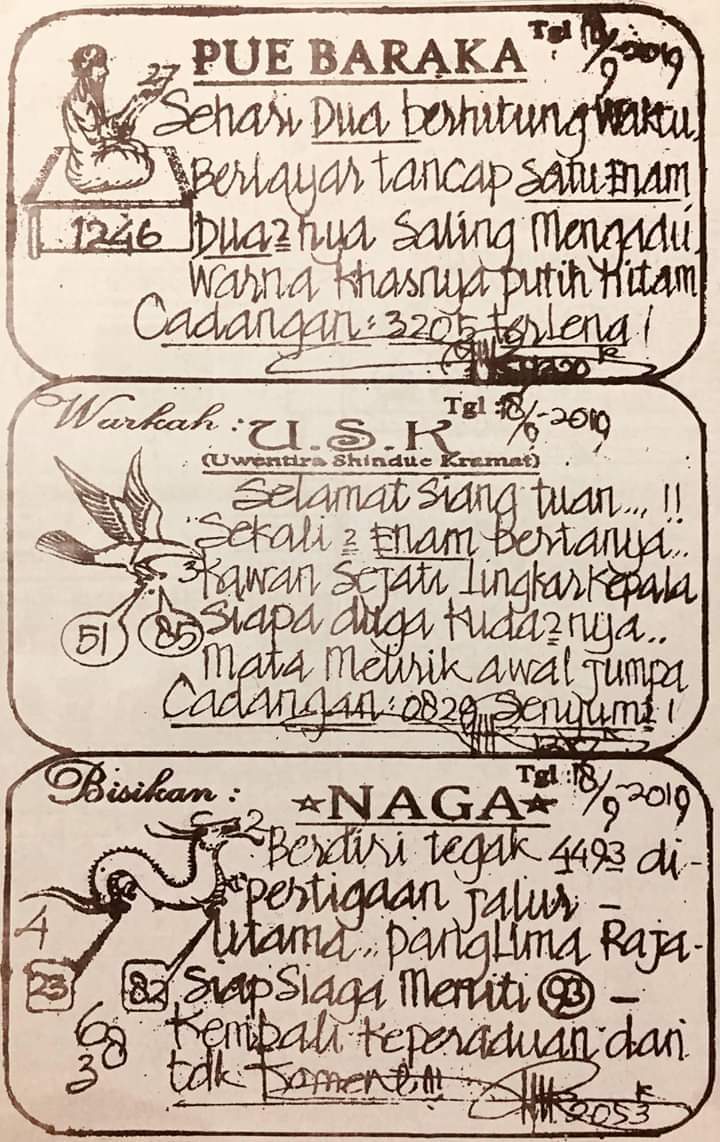 PUE BARAKA
Tgl 18/9-2019
27
Sehari Dua berhitung Waktu,
Berlayar tancap Satu Enam
1246
Dua2nya Saling Mengadu,
Warna Khasnya putih Hitam
Cadangan: 3205 terlena!
Warkah:
U.S.K
Tgl :18/9-2019
(Uwentira Shinduc Kramat)
Selamat siang tuan... !!
Sekali 2 Enam bertanya..
3
Kawan Sejati Lingkar Kepala
51
85
Siapa duga Kuda2nya..
Mata Melirik awal jumpa
Cadangan: 0829 Senyum2!
Bisikan :
☆NAGA★
Tgl :18/9-2019
2
Berdiri tegak 4493 di-
pertigaan jalur -
4
Utama.. panglima Raja-
23
82
Siap Siaga Meniti 93 -
68
Kembali Keperaduan dan
3
tdk Komen!!!
2053